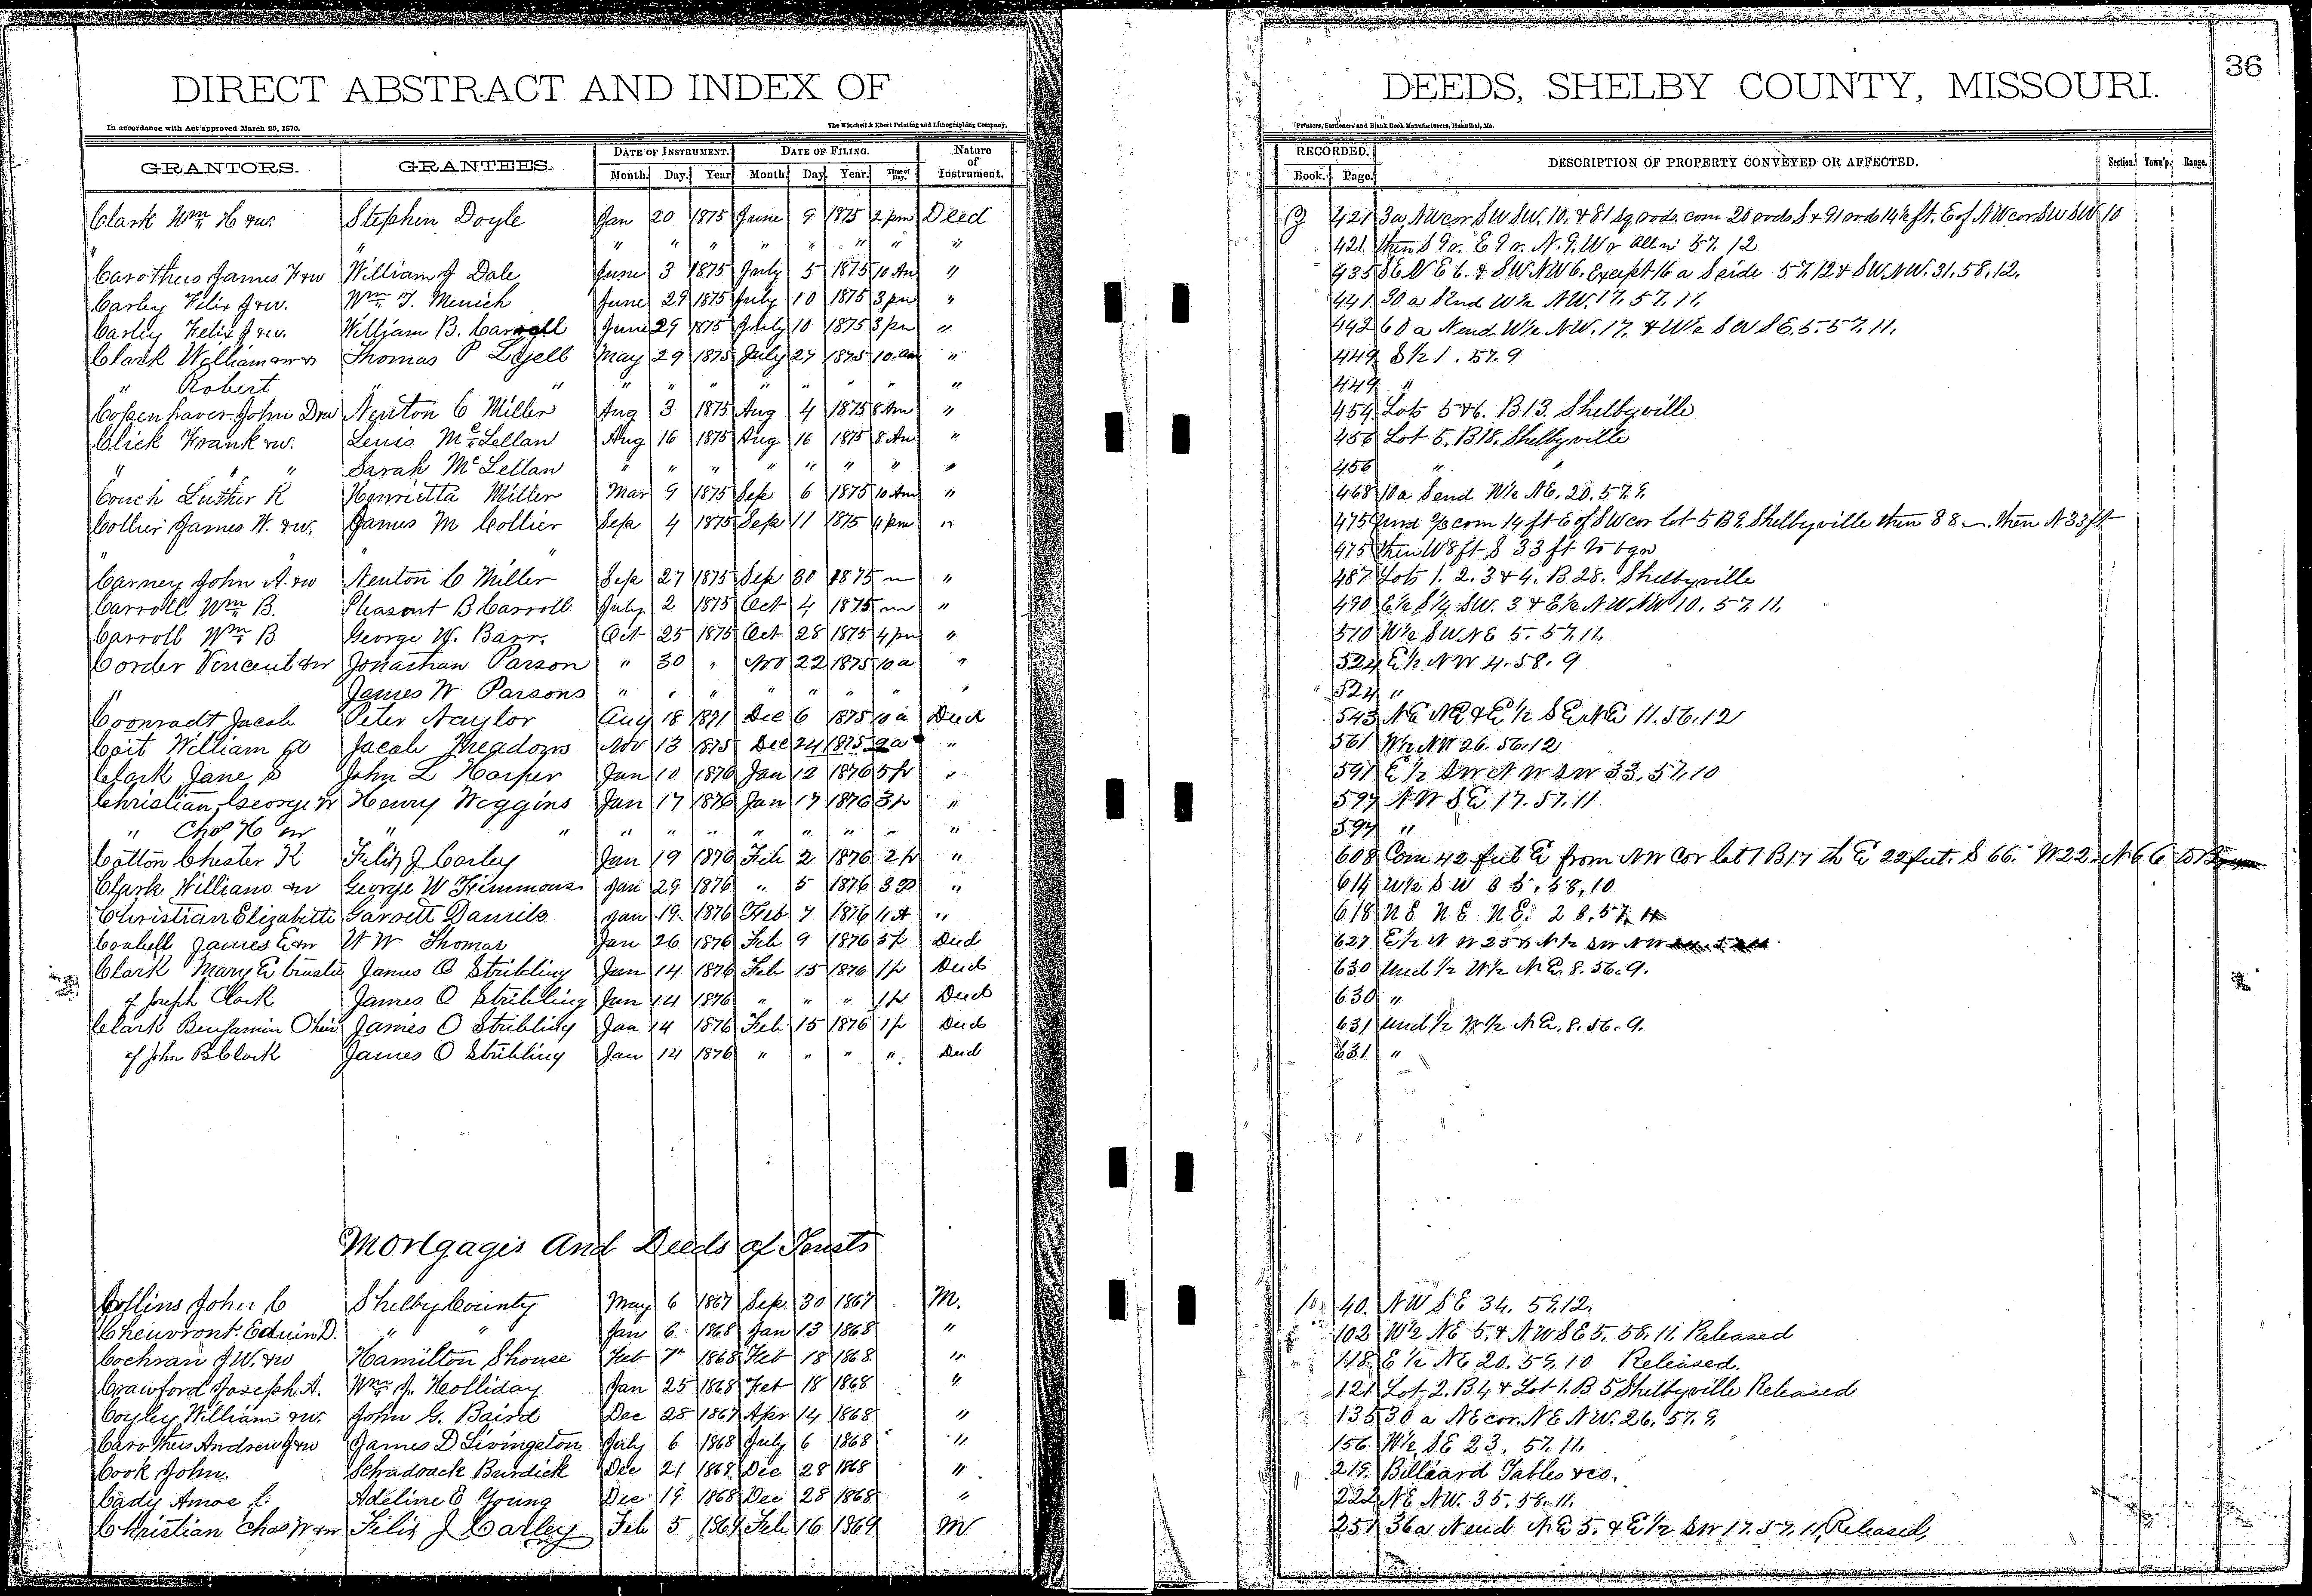 36
DIRECT ABSTRACT AND INDEX OF DEEDS, SHELBY COUNTY, MISSOURI.
In accordance with Act approved March 25, 1870. The Winchell & Ebert Printing and Lithographing Company, Printers, Stationers and Blank Book Manufacturers, Hannibal, Mo.
GRANTORS. GRANTEES. DATE OF INSTRUMENT. DATE OF FILING. Nature of Instrument. RECORDED. DESCRIPTION OF PROPERTY CONVEYED OR AFFECTED. Section. Town'p. Range.
Month. Day. Year Month. Day. Year. Time of Day. Book. Page.
Clark Wm H & w. Stephen Doyle Jan 20 1875 June 9 1875 2 pm Deed 421 3a NW cor SW SW. 10. & 81 sq rods. com 20 rods S & 91 rods 14½ ft. E of NW cor SW SW 10
" " " " " " " " " 421 then S 9 r. E 9 r. N. 9. W r all in 57. 12
Carothers James F & w William J Dale June 3 1875 July 5 1875 10 Am " 435 SE NE 6. & SW NW 6. Except 16 a S side 57. 12 & SW. NW. 31. 58. 12.
Carley Felix J & w. Wm. T. Menich June 29 1875 July 10 1875 3 pm " 441 30 a S end W½ NW. 17. 57. 11.
Carley Felix J & w. William B. Carroll June 29 1875 July 10 1875 3 pm " 442 60 a N end W½ NW. 17. & W½ SW SE. 5. 57. 11.
Clark William & w Thomas P Lyell May 29 1875 July 27 1875 10. am " 449 S½ 1. 57. 9
" Robert " " " " " " " " " " 449 "
Copenhaver John D & w Newton C Miller Aug 3 1875 Aug 4 1875 8 Am " 454 Lots 5 & 6. B 13. Shelbyville
Click Frank & w. Lewis McLellan Aug 16 1875 Aug 16 1875 8 Am " 456 Lot 5. B 18. Shelbyville
" " " Sarah McLellan " " " " " " " " 456 "
Couch Luther R Henrietta Miller Mar 9 1875 Sep 6 1875 10 Am " 468 10 a S end W½ NE. 20. 57. 9.
Collier James W. & w. James M Collier Sep 4 1875 Sep 11 1875 4 pm " 475 und ⅔ com 14 ft E of SW cor lot 5 B 9. Shelbyville then E 8 then N 33 ft
" " 475 then W 8 ft S 33 ft to bgn
Carney John A. & w Newton C Miller Sep 27 1875 Sep 30 1875 " 487 Lots 1. 2. 3 & 4. B 28. Shelbyville
Carroll Wm B. Pleasant B Carroll July 2 1875 Oct 4 1875 " 490 E½ S½ SW. 3 & E½ NW NW 10. 57. 11.
Carroll Wm B George W. Barr. Oct 25 1875 Oct 28 1875 4 pm " 510 W½ SW NE 5. 57. 11.
Corder Vincent & w Jonathan Parson " 30 " Nov 22 1875 10 a " 524 E½ NW 4. 58. 9
" James W Parsons " " " " " " " " 524 "
Coonradt Jacob Peter Naylor Aug 18 1871 Dec 6 1875 10 a Deed 543 NE NE & E½ SE NE 11. 56. 12
Coit William Jacob Meadows Nov 13 1875 Dec 24 1875 " 561 W½ NW 26. 56. 12
Clark Jane S John L Harper Jan 10 1876 Jan 12 1876 5 p " 591 E½ SW NW SW 33. 57. 10
Christian George W Henry Wiggins Jan 17 1876 Jan 17 1876 3 p " 597 NW SE 17. 57. 11
" Chas H & w " " " " " " " " " " 597 "
Cotton Chester K Felix J Carley Jan 19 1876 Feb 2 1876 2 p " 608 Com 42 feet E from NW cor lot 1 B 17 th E 22 feet. S 66. W 22. N 66 to
Clark William & w George W Timmons Jan 29 1876 " 5 1876 3 p " 614 W½ SW 35. 58. 10
Christian Elizabeth Garrett Daniels Jan 19. 1876 Feb 7 1876 11 A " 618 NE NE NE. 28. 57.
James E & w W W Thomas Jan 26 1876 Feb 9 1876 5 p Deed 627 E½ NW 25 & N½ SW NW
Clark Mary E trustee James O Stribling Jan 14 1876 Feb 15 1876 1 p Deed 630 und ½ W½ NE. 8. 56. 9.
of Joseph Clark James O Stribling Jan 14 1876 " " " 1 p Deed 630 "
Clark Benjamin O heir James O Stribling Jan 14 1876 Feb 15 1876 1 p Deed 631 und ½ W½ NE. 8. 56. 9.
of John B Clark James O Stribling Jan 14 1876 " " " " Deed 631 "
Mortgages And Deeds of Trusts
Collins John C Shelby County May 6 1867 Sep. 30 1867 M. 40. NW SE 34. 59. 12.
Cheuvront. Edwin D. " " Jan 6 1868 Jan 13 1868 " 102 W½ NE 5. & NW SE 5. 58. 11. Released
Cochran J W. & w Hamilton Shouse Feb 7 1868 Feb 18 1868. " 118 E½ NE 20. 59. 10 Released.
Crawford Joseph A. Wm J. Holliday Jan 25 1868 Feb 18 1868 " 121 Lot 2. B 4 & Lot 1. B 5 Shelbyville Released
Coyley William & w. John G. Baird Dec 28 1867 Apr 14 1868 " 135 30 a NE cor. NE NW. 26. 57. 9.
Carothers Andrew J & w James D Livingston July 6 1868 July 6 1868 " 156 W½ SE 23. 57. 11.
Cook John. Schadrack Burdick Dec 21 1868 Dec 28 1868 " 219. Billiard Tables &co.
Cady Amos L. Adeline E Young Dec 19 1868 Dec 28 1868 " 222 NE NW. 35. 58. 11.
Christian Chas W & w Felix J Carley Feb 5 1869 Feb 16 1869 M 251 36 a N end NE 5. & E½ SW 17. 57. 11, Released,